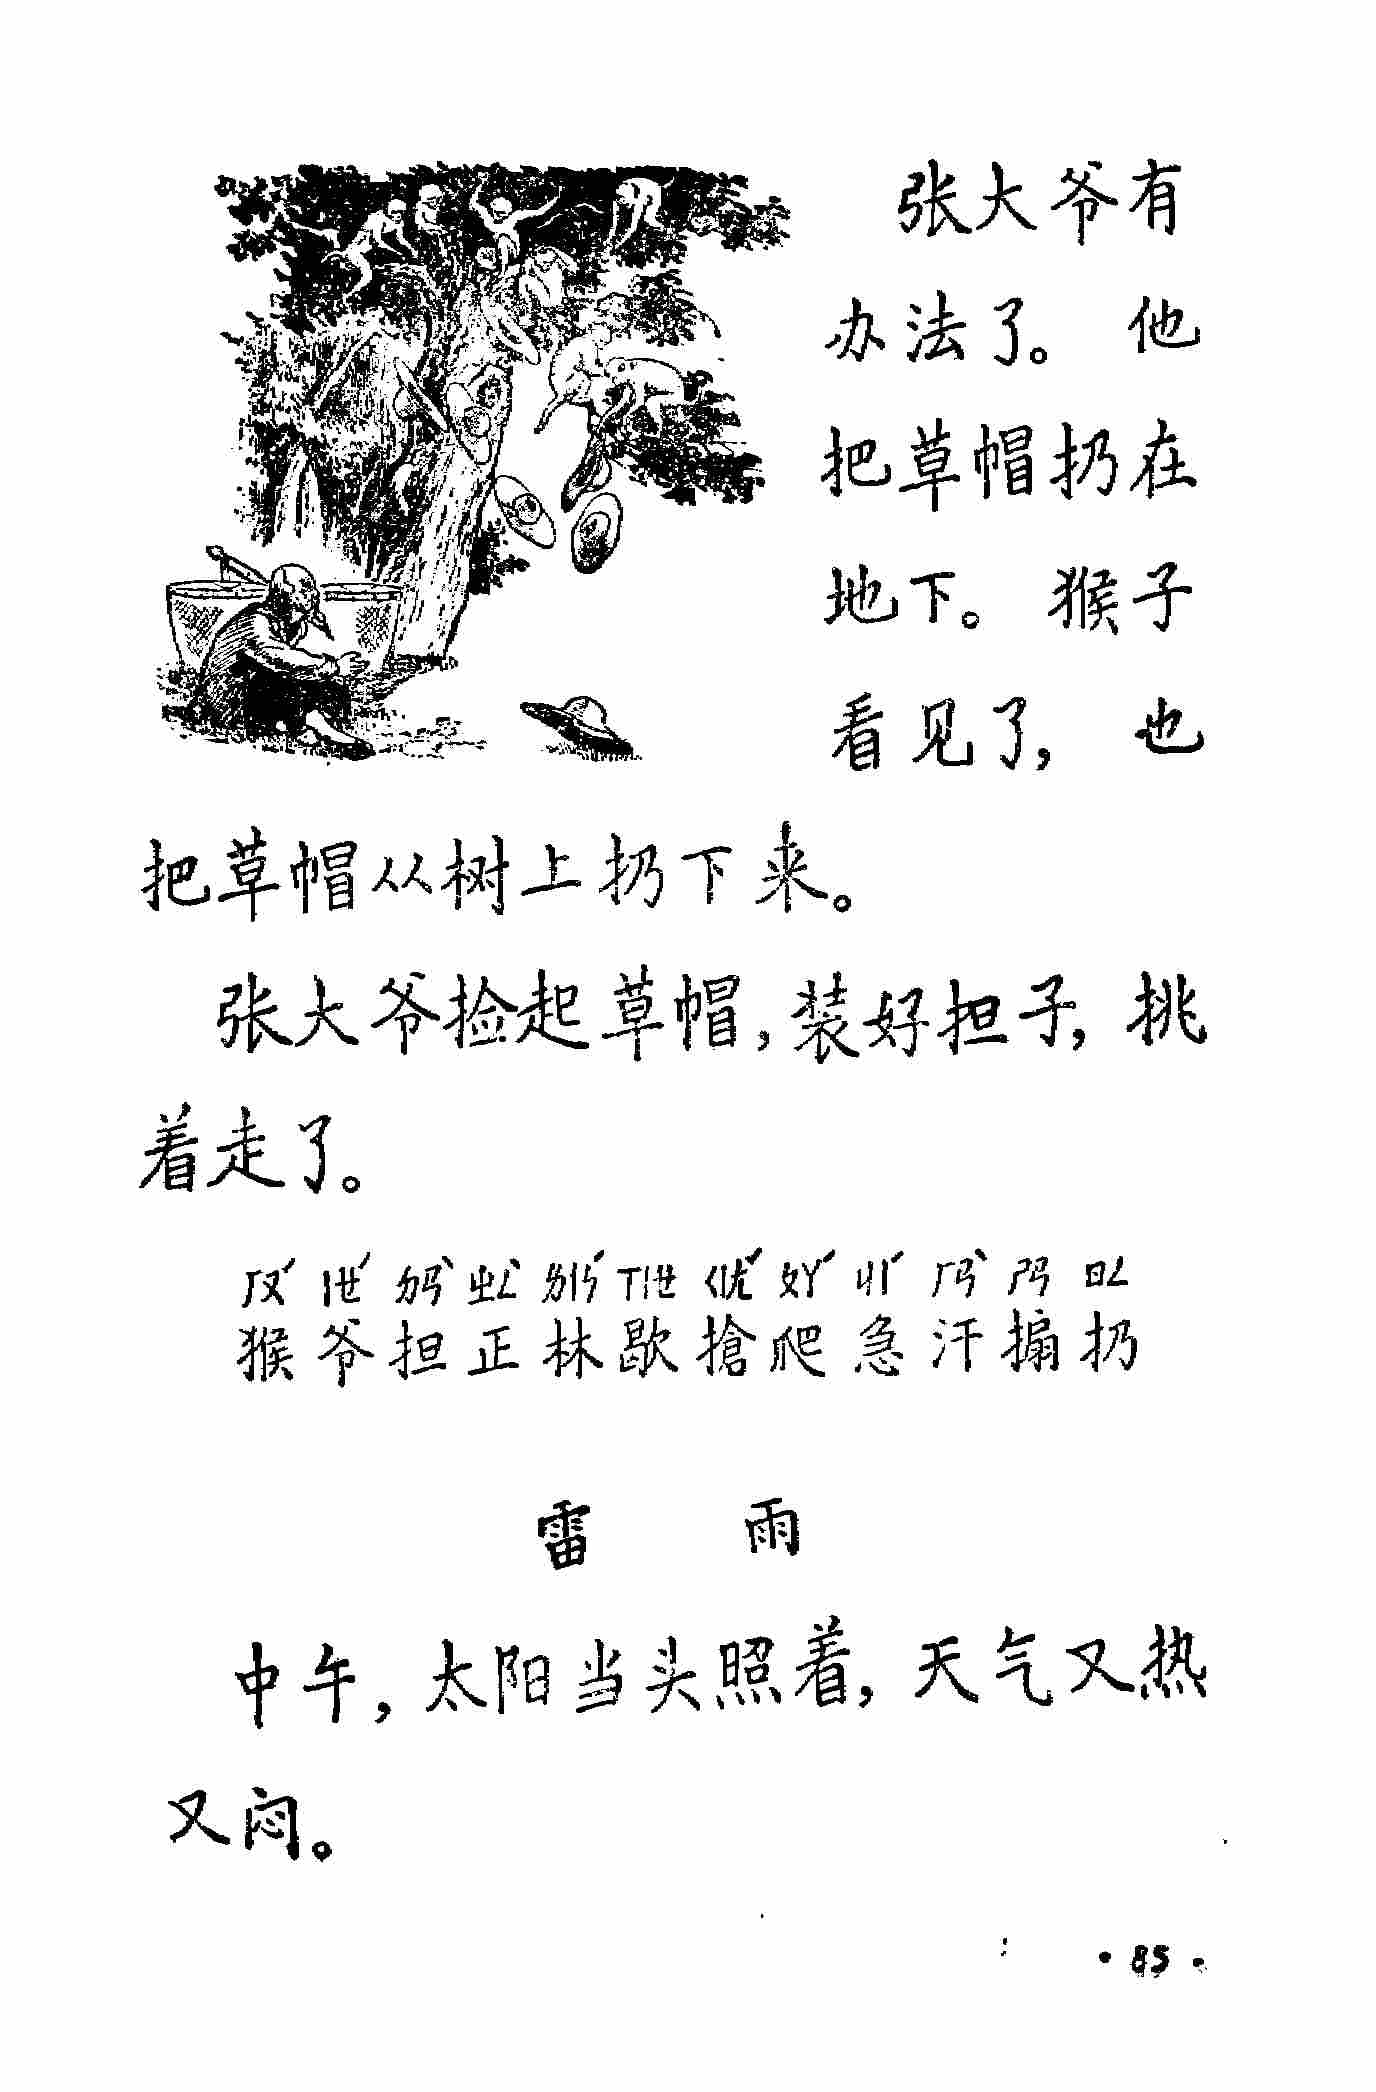 张大爷有
办法了。 他
把草帽扔在
地下。 猴子
看见了， 也
把草帽从树上扔下来。
张大爷捡起草帽，装好担子，挑
着走了。
猴爷担正林歇搶爬急汗搧扔
雷 雨
中午，太阳当头照着，天气又热
又闷。
·85·